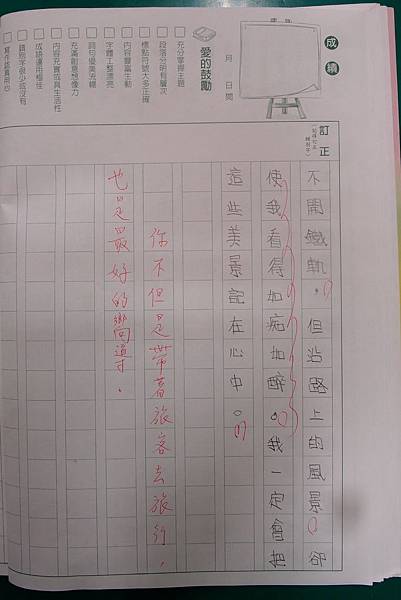 成績
月　日閱
愛的鼓勵
充分掌握主題
段落分明有層次
標點符號大多正確
內容豐富生動
字體工整漂亮
詞句優美流暢
充滿創意想像力
內容充實或具生活性
成語運用極佳
錯別字很少或沒有
寫作認真用心
訂正
不開鐵軌，但沿路上的風景卻
使我看得如痴如醉。我一定會把
這些美景記在心中。
你不但是帶著旅客去旅行，
也是最好的嚮導。